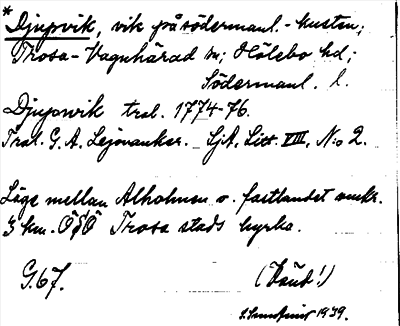 * Djupvik, vik på södermanl.-kusten;
Trosa-Vagnhärad sn; Hölebo hd;
Södermanl. l.
Djupwik tral. 1774-76.
Tral. G. A. Lejonanker. SjA. Litt. VIII, N:o 2.
Läge mellan Alholmen o. fastlandet omkr.
3 km. ÖSÖ Trosa stads kyrka.
G.67. (Känd!)
1939.